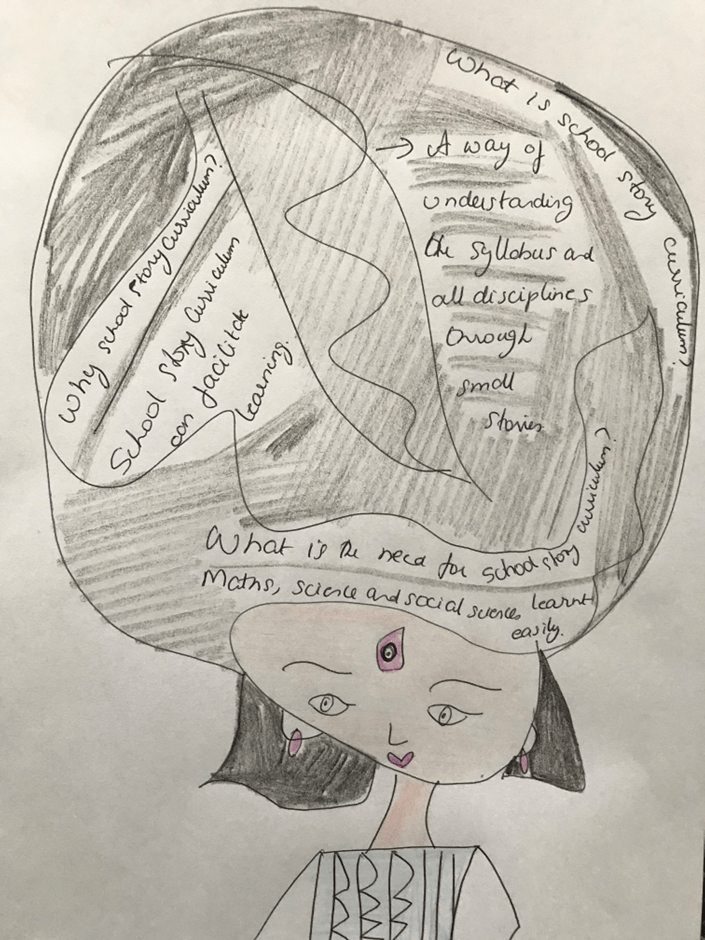 What is school story curriculum?
→ A way of
understanding
the syllabus and
all disciplines
through
small
stories
Why school story curriculum?
School story curriculum
can facilitate
learning.
What is the need for school story curriculum?
Maths, science and social science learnt
easily.